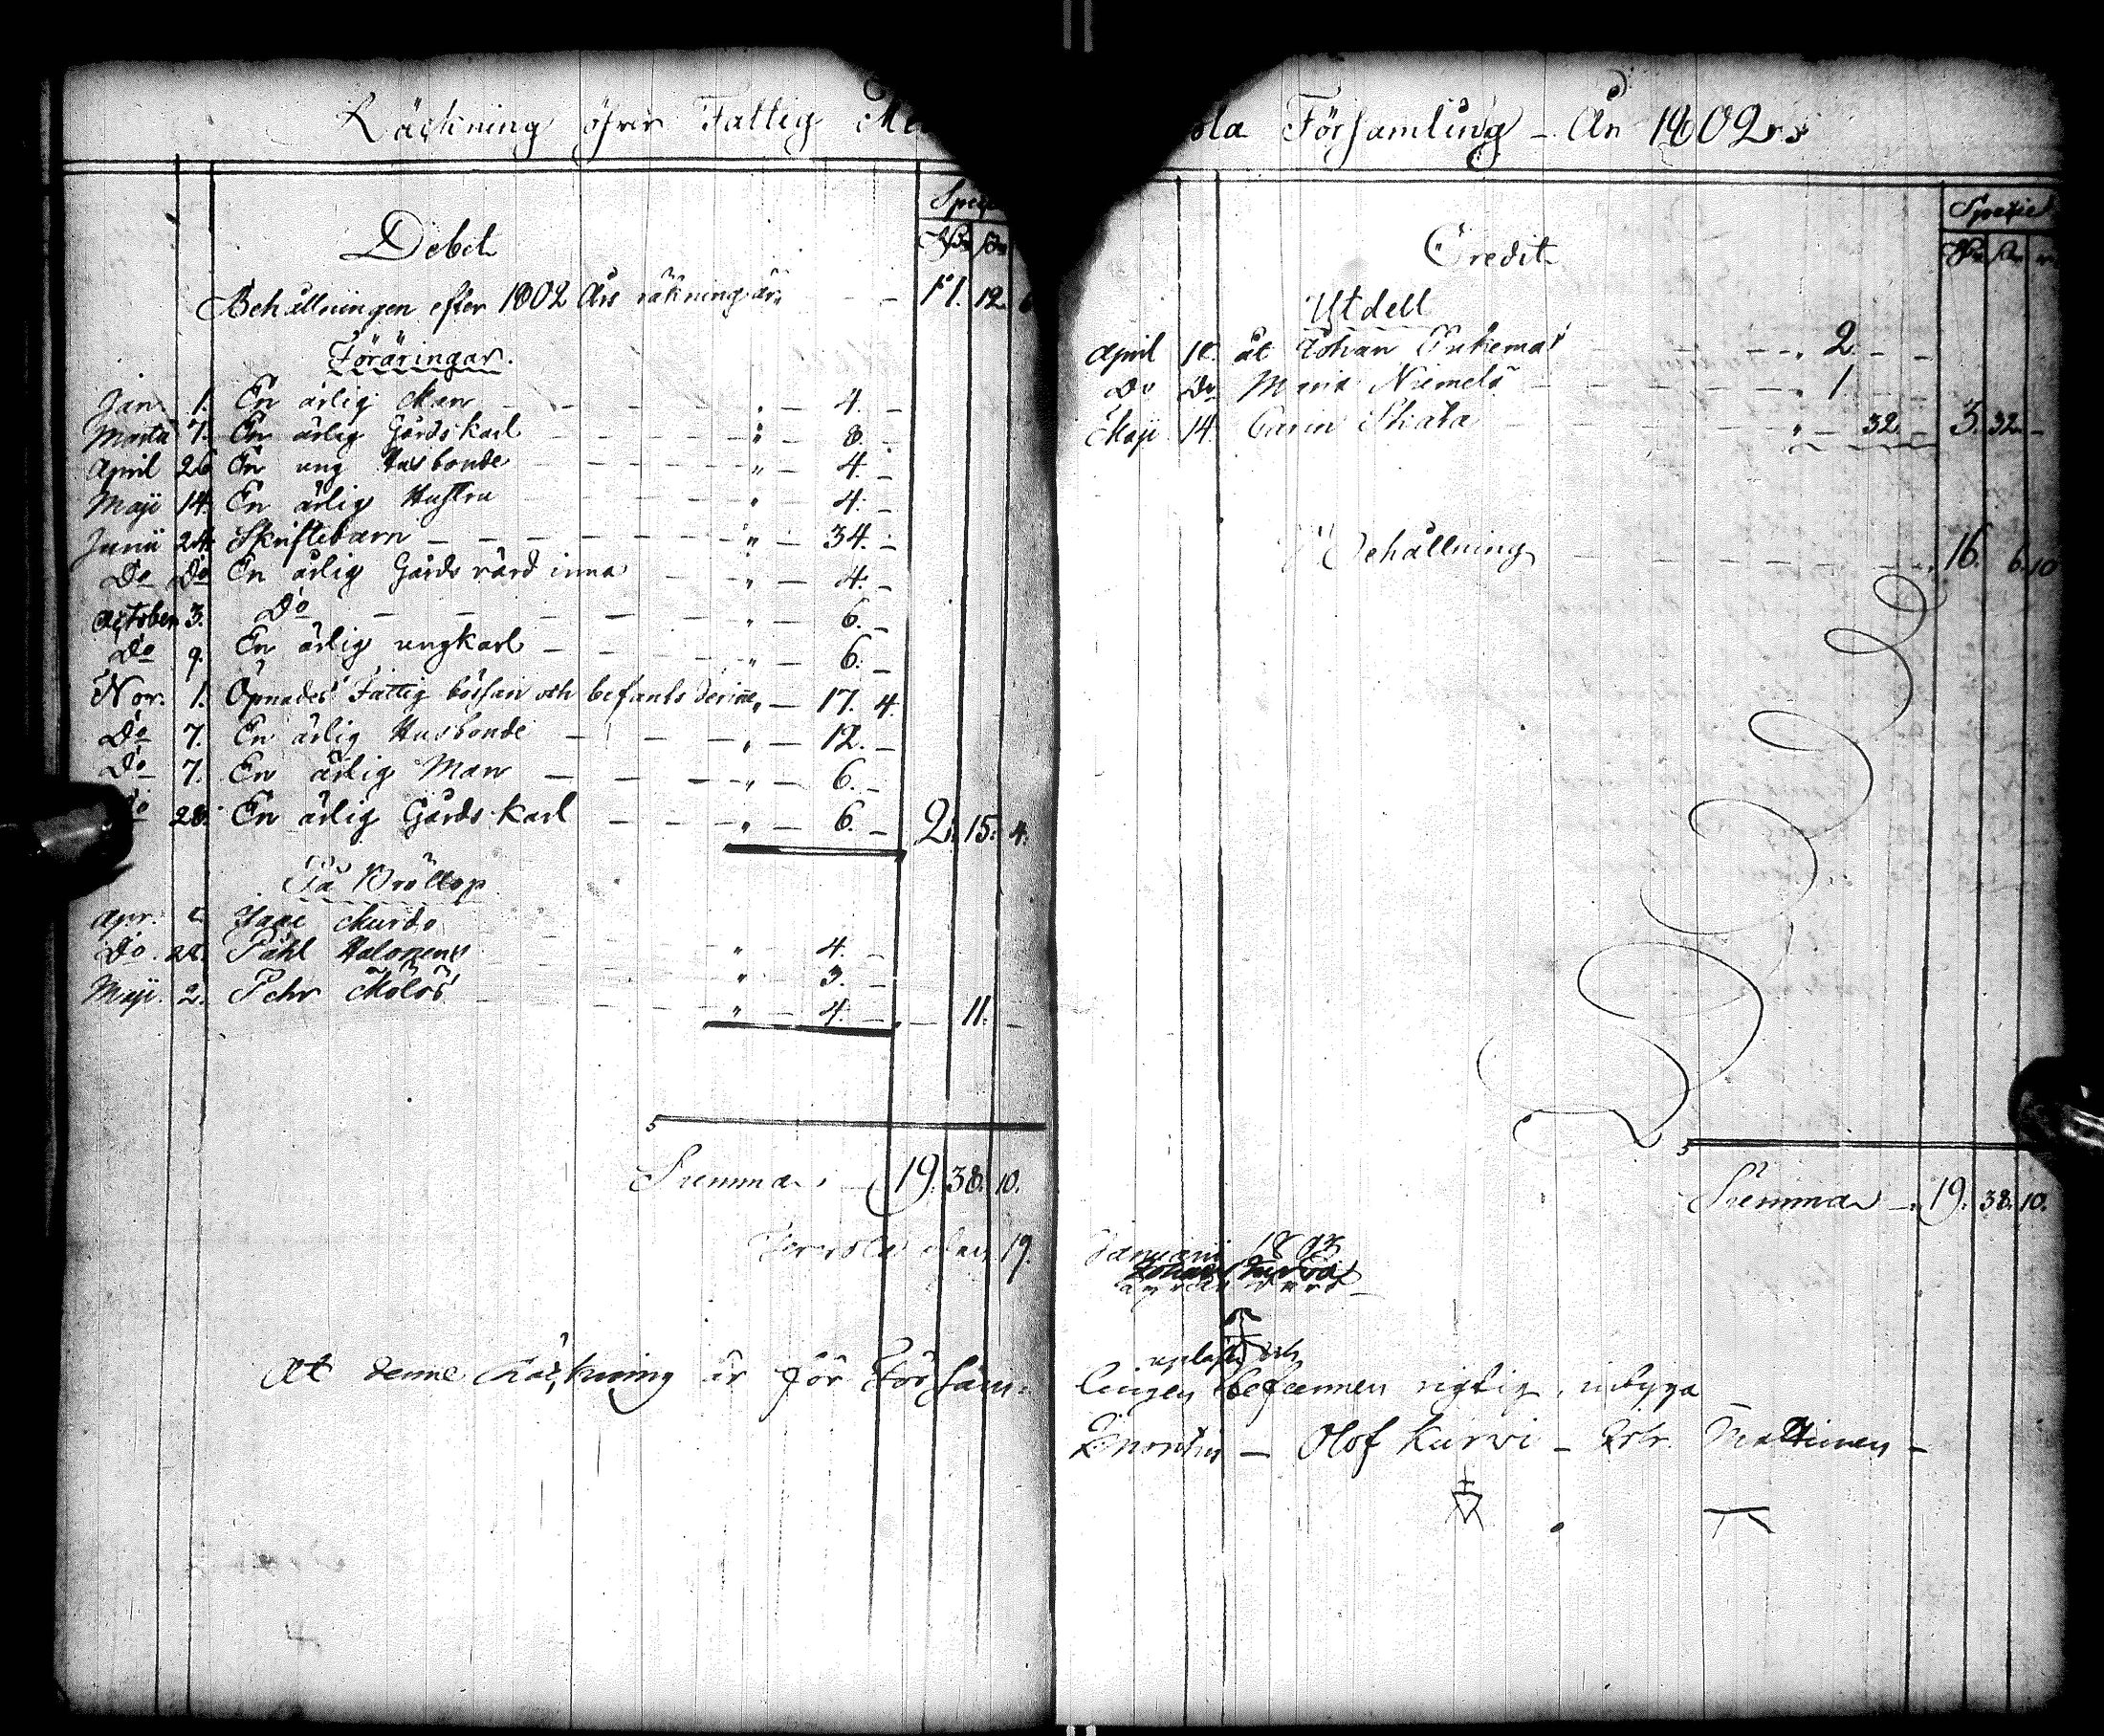 Räckning öfver Fattig Me
Debet
Specie
Rdr sk
Behållningen efter 1802 Års räkning är - - 17. 12 6
Föräringar.
Jan. 1. En ärlig Man - - - - - " - 4. -
Martii 7. En ärlig Gårdskarl - - - - - " - 8. -
April 26 En ung Husbonde - - - - - " - 4. -
Maji 14. En ärlig Hustru - - - - - " - 4. -
Junii 24. Skriftebarn - - - - - " - 34. -
Do Do En ärlig Gårds värdinna - - " - 4. -
October 3. Do - - - - - " - 6. -
Do 9. En ärlig ungkarl - - - - " - 6. -
Nov. 1. Öpnades Fattig börsan och befants derinne " - 17. 4.
Do 7. En ärlig Husbonde - - - " - 12. -
Do 7. En ärlig Man - - - " - 6. -
Do 28. En ärlig Gårds karl - - - " - 6. - 2. 15. 4.
På Bröllop
Apr. Murdo - - - " - 4. -
Do. 28. Påhl Halonens - - - " - 3. -
Maji. 2. Pehr - - - " - 4. - - 11. -
Summa. - 19. 38. 10.
den 19.
At denne Räckning är för Försam-
ola Församling - År 1802
Specie
Rdr sk
Credit
Utdelt
April åt Johan - - - " 2. - -
Do Do Maria Niemelä - - - " 1. - -
Maji 14. Carin Skata - - - " - 32 - 3. 32. -
Behållning - - - - - 16. 6. 10
Summa - 19. 38. 10.
Januarii
upläst och
lingen befunnen rigtig, intyga
Olof Kurvi -